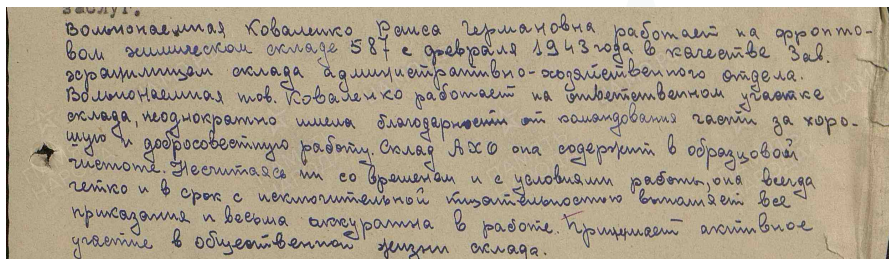 заслуг.
Вольнонаемная Коваленко Раиса Германовна работает на фронто-
вом химическом складе 587 с февраля 1943 года в качестве Зав.
хранилищем склада административно-хозяйственного отдела.
Вольнонаемная тов. Коваленко работает на ответственном участке
склада, неоднократно имела благодарности от командования части за хоро-
шую и добросовестную работу. Склад АХО она содержит в образцовой
чистоте. Несчитаясь ни со временем и с условиями работы, она всегда
четко и в срок с исключительной тщательностью выполняет все
приказания и весьма аккуратна в работе. Принимает активное
участие в общественной жизни склада.